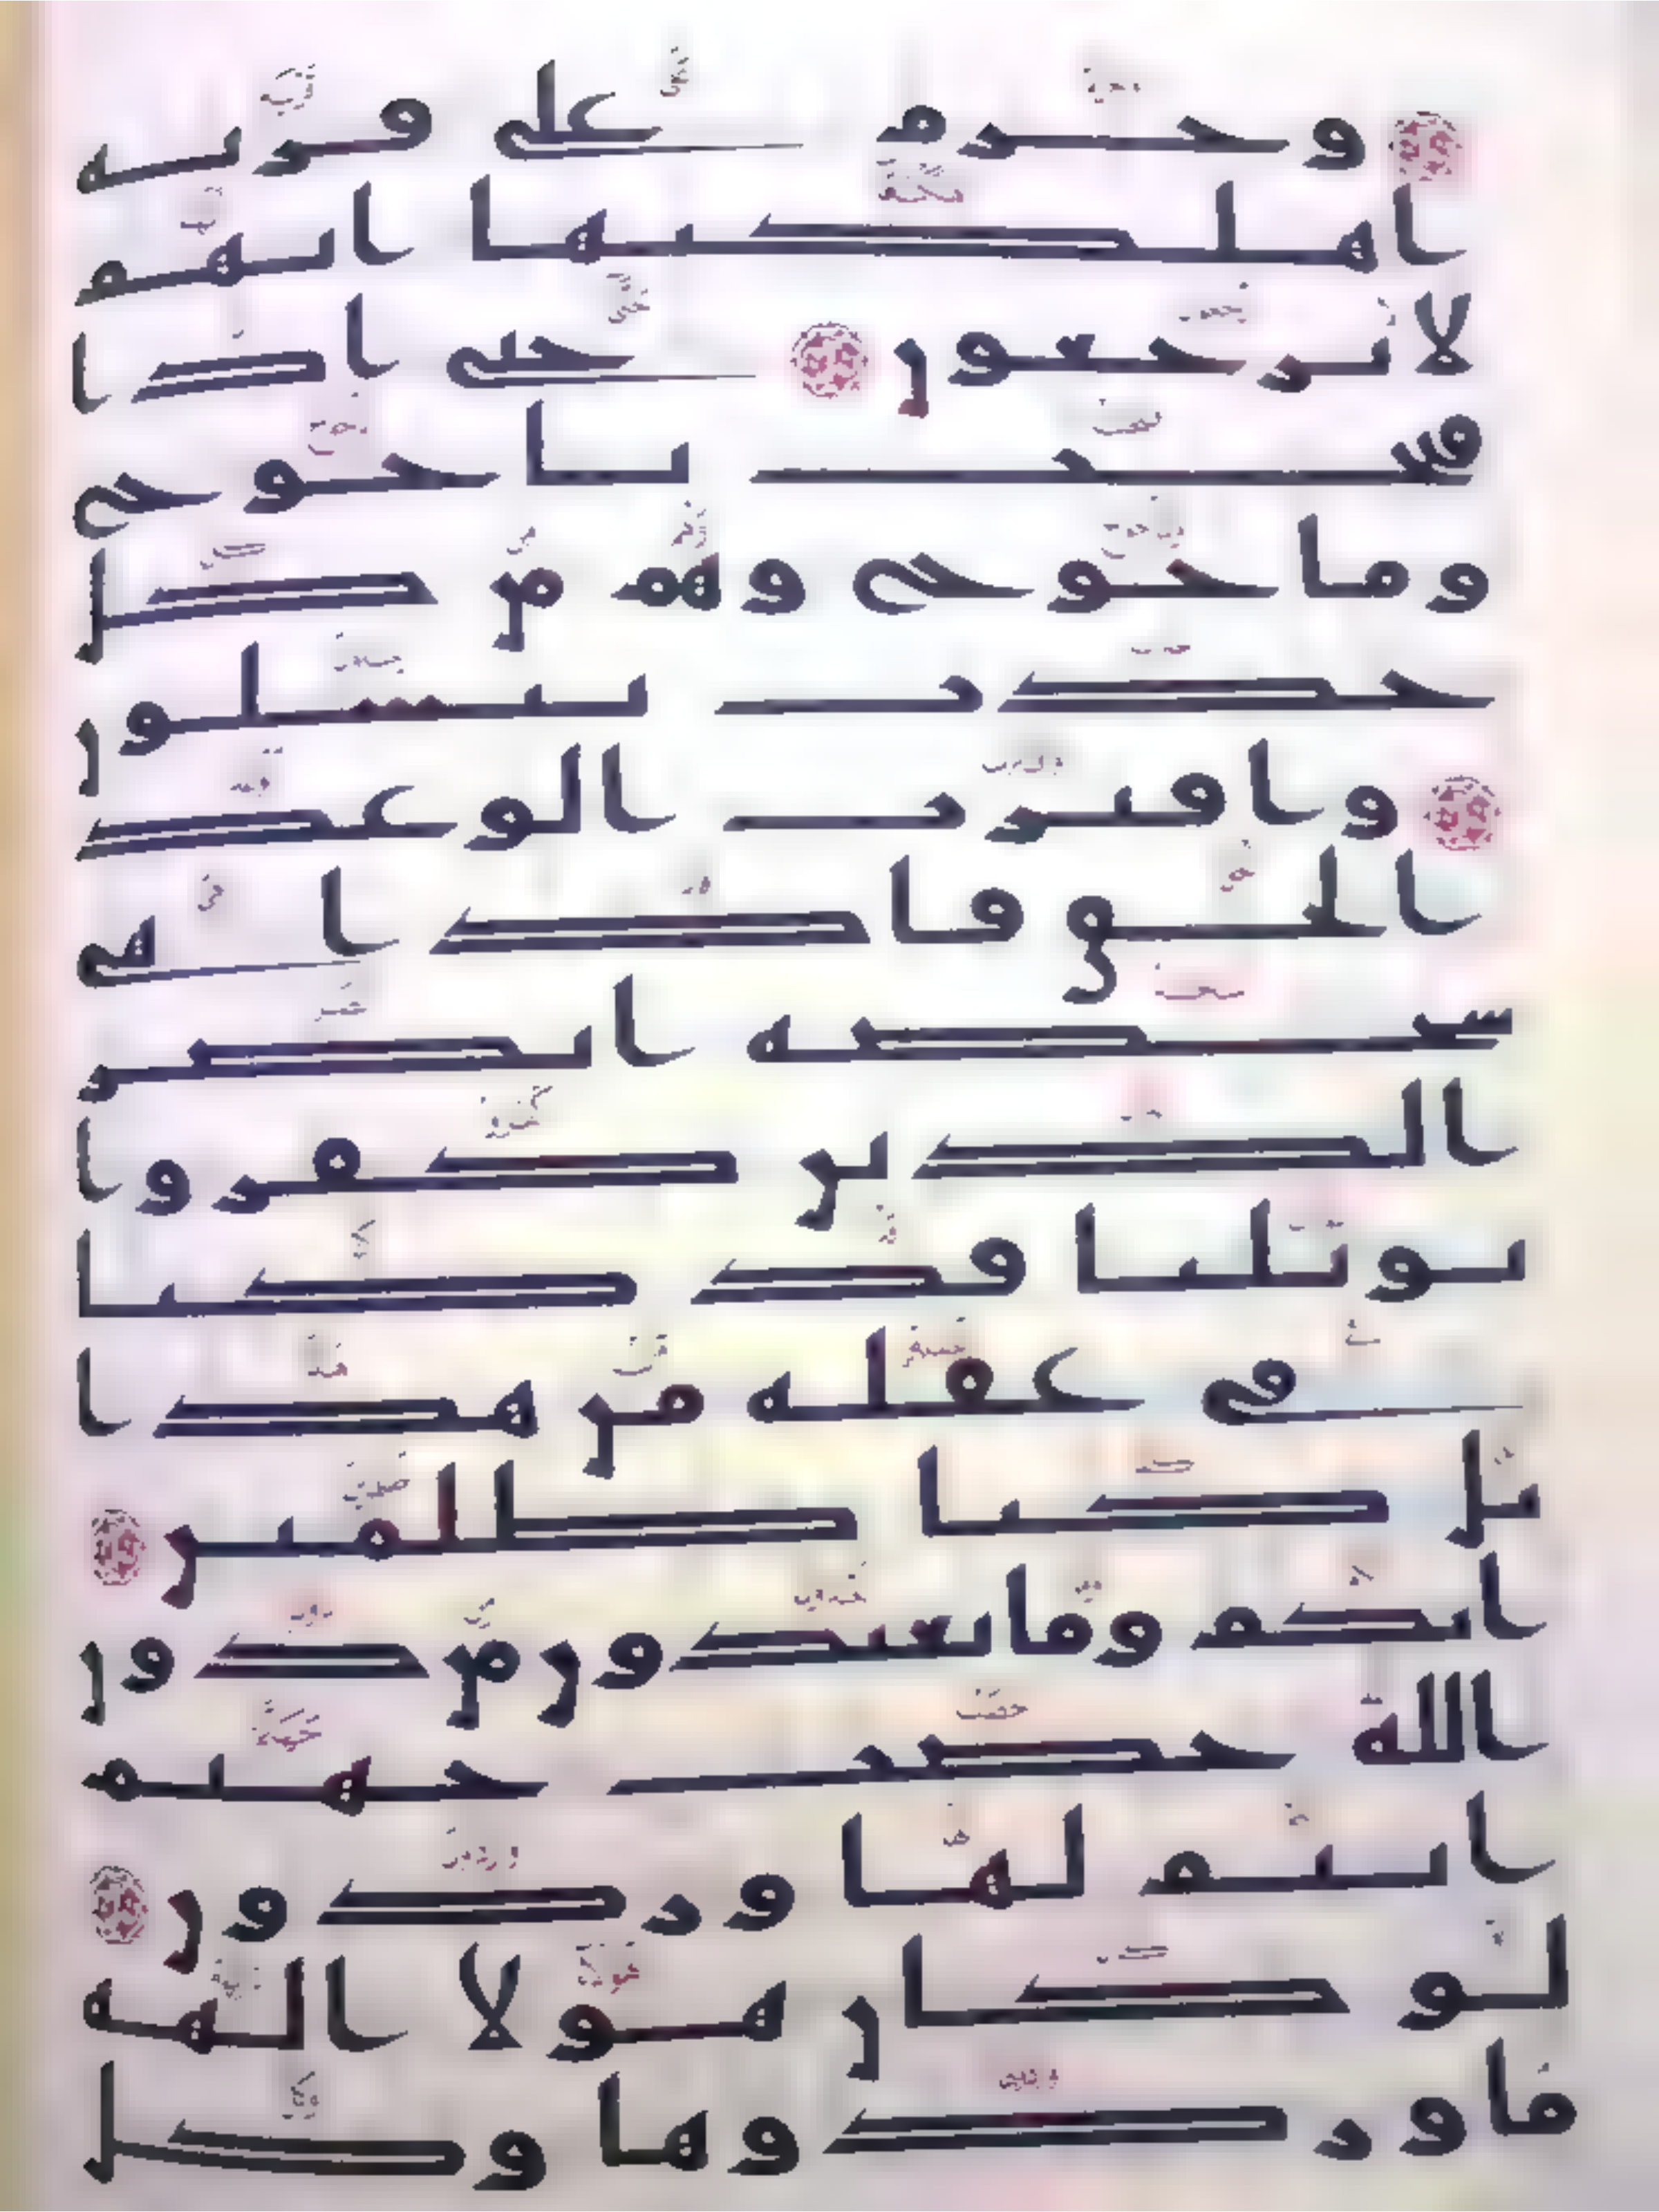 وحرم على قرية
اهلكنها انهم
لا يرجعون حتى اذا
فتحت ياجوج
وماجوج وهم من كل
حدب ينسلون
واقترب الوعد
الحق فاذا هي
شخصة ابصر
الذين كفروا
يويلنا قد كنا
في غفلة من هذا
بل كنا ظلمين
انكم وما تعبدون من دون
الله حصب جهنم
انتم لها وردون
لو كان هولا الهة
ما وردوها وكل